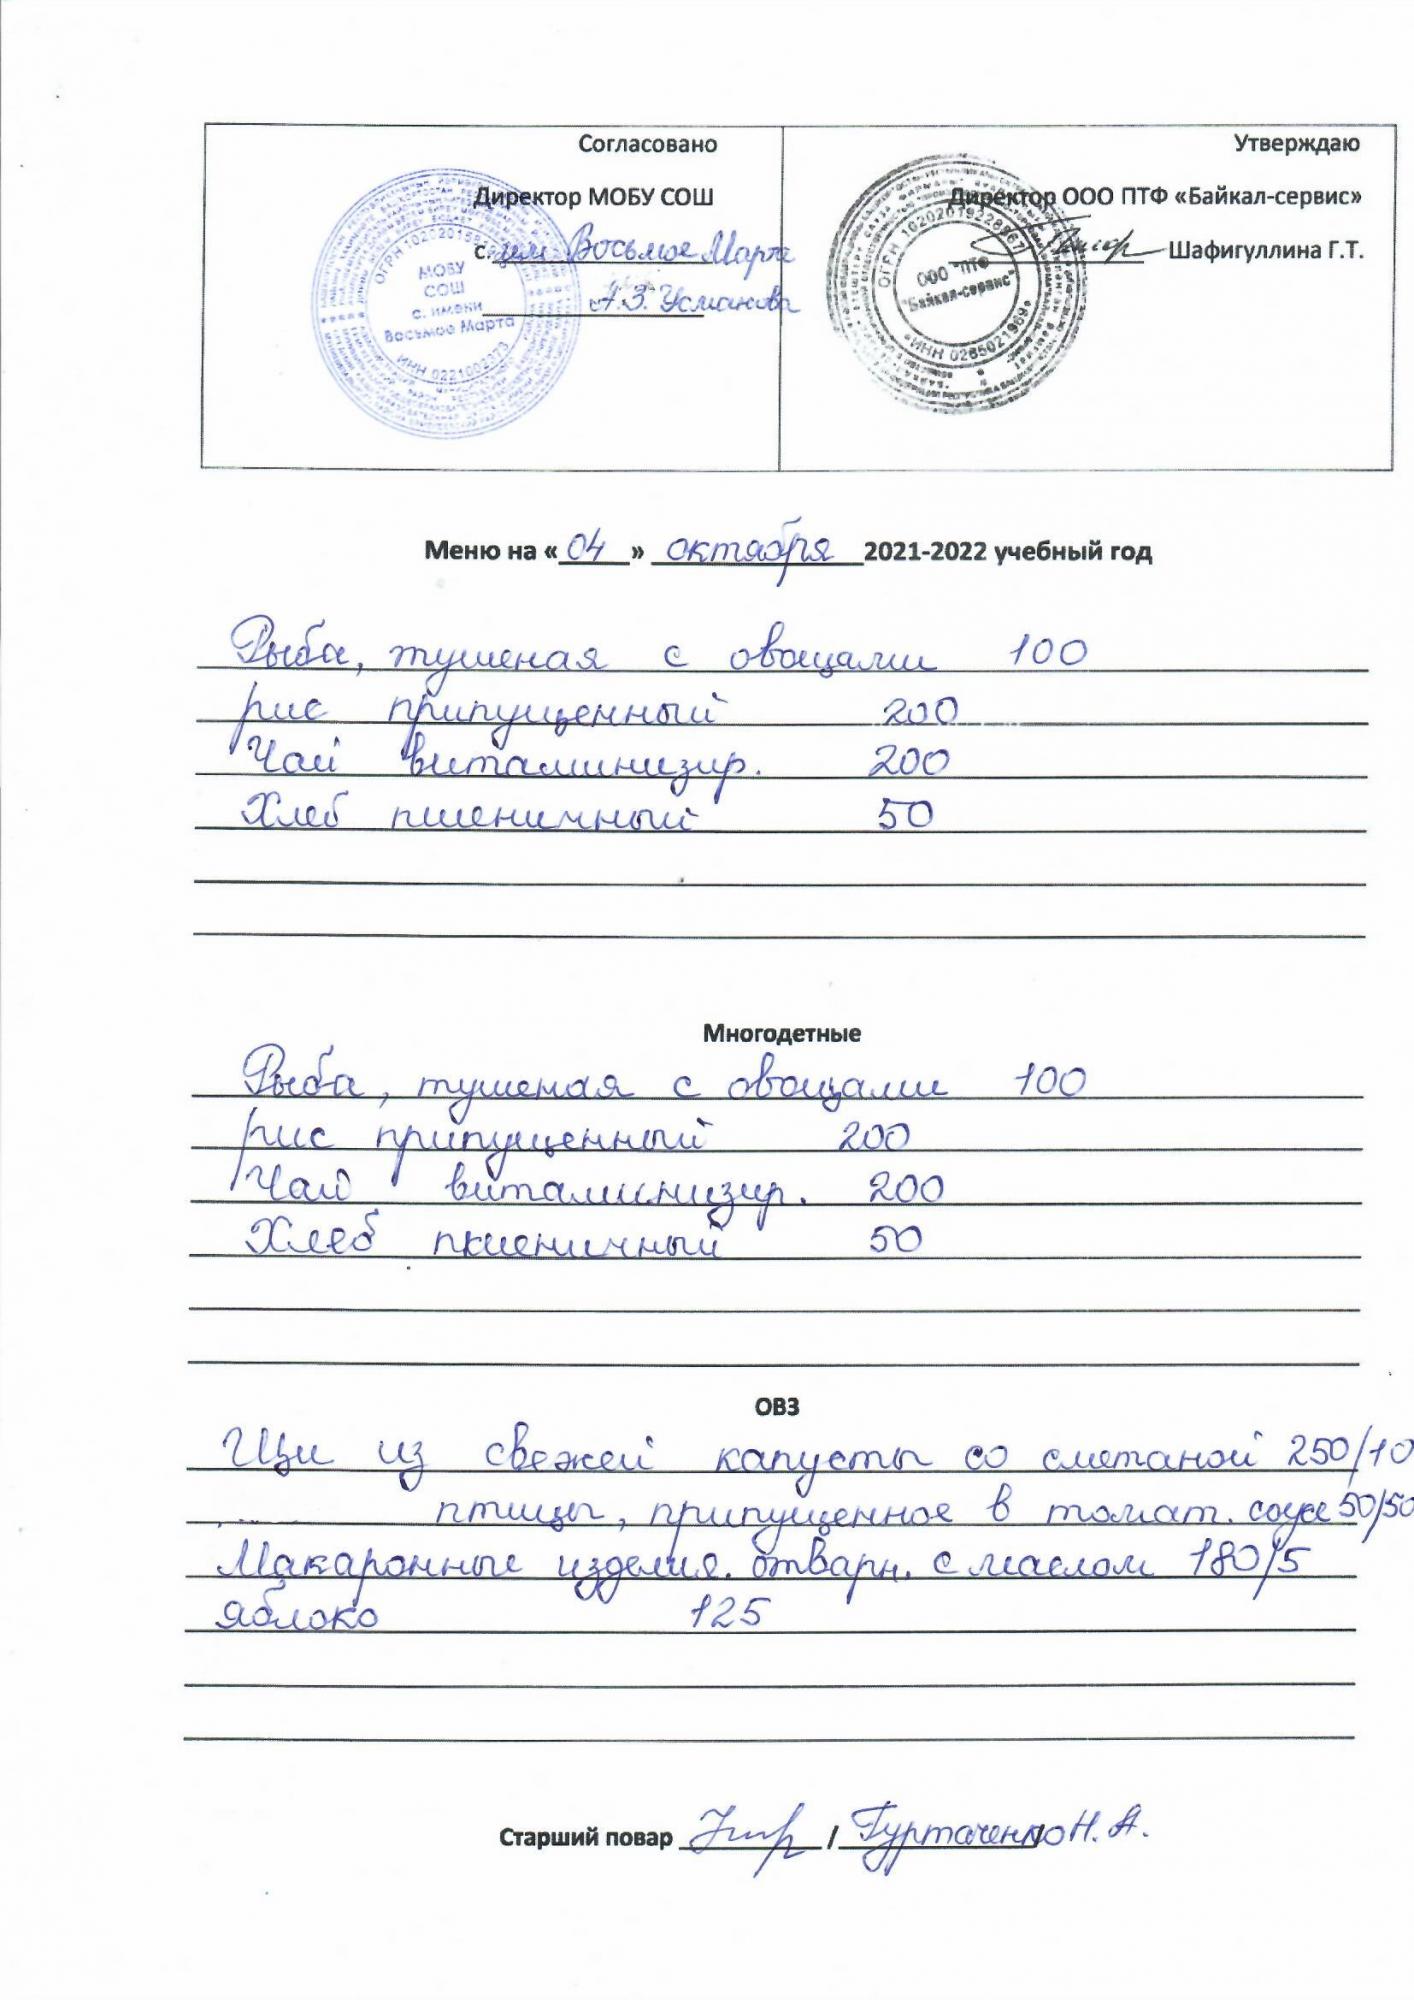 Согласовано
Директор МОБУ СОШ
с. им. Восьмое Марта
А.З. Усманова
МОБУ
СОШ
с. имени
Восьмое Марта
ИНН 0221002373
Утверждаю
Директор ООО ПТФ «Байкал-сервис»
Шафигуллина Г.Т.
ОГРН 1020201922856
ООО "ПТФ
"Байкал-сервис"
ИНН 0265021969
Меню на «04» октября 2021-2022 учебный год
Рыба, тушеная с овощами 100
рис припущенный 200
Чай витаминизир. 200
Хлеб пшеничный 50
Многодетные
Рыба, тушеная с овощами 100
рис припущенный 200
Чай витаминизир. 200
Хлеб пшеничный 50
ОВЗ
Щи из свежей капусты со сметаной 250/10
птицы, припущенное в томат. соусе 50/50
Макаронные изделия. отварн. с маслом 180/5
яблоко 125
Старший повар / Н. А.